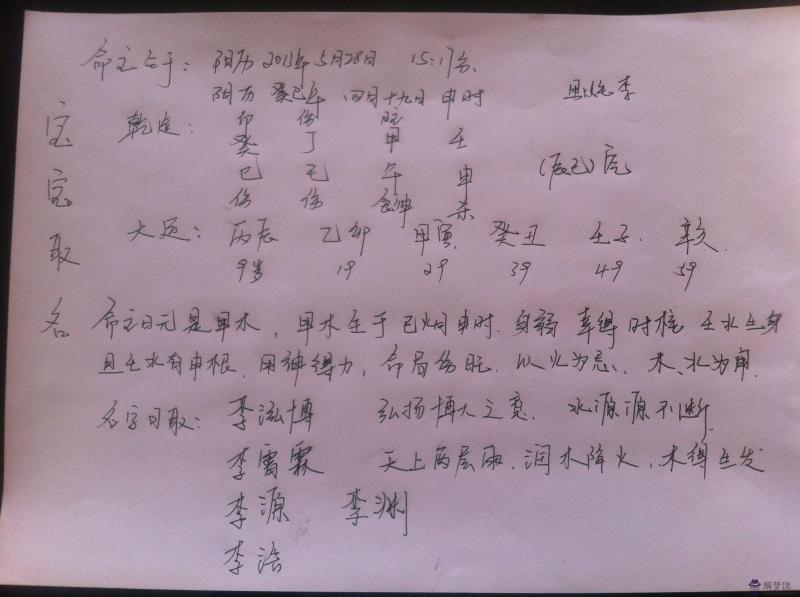 命主生于：阳历 2013年5月28日 15:17分
阴历 癸巳年 四月十九日 申时 男 姓李
宝宝取名
印 伤 旺
乾造：癸 丁 甲 壬
巳 巳 午 申 (辰巳)空
伤 伤 食神 杀
大运：丙辰 乙卯 甲寅 癸丑 壬子 辛亥
9岁 19 29 39 49 59
命主日元是甲木，甲木生于巳火月申时，身弱 幸得时柱 壬水生身
且壬水有申根，用神得力，命局伤旺。以火为忌、木、水为用。
名字可取：李泓博 弘扬博大之意，水源源不断
李雷霖 天上两层雨，润木降火，木得生发
李源 李渊
李浩
解梦佬